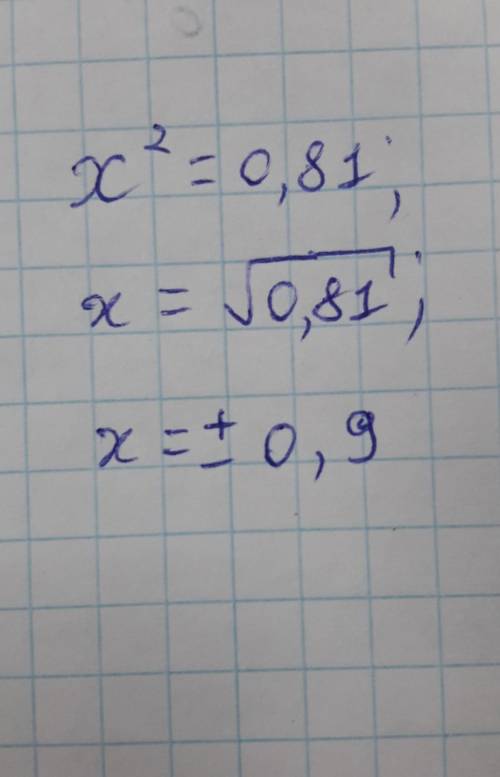 x² = 0,81;
x = √0,81;
x = ± 0,9